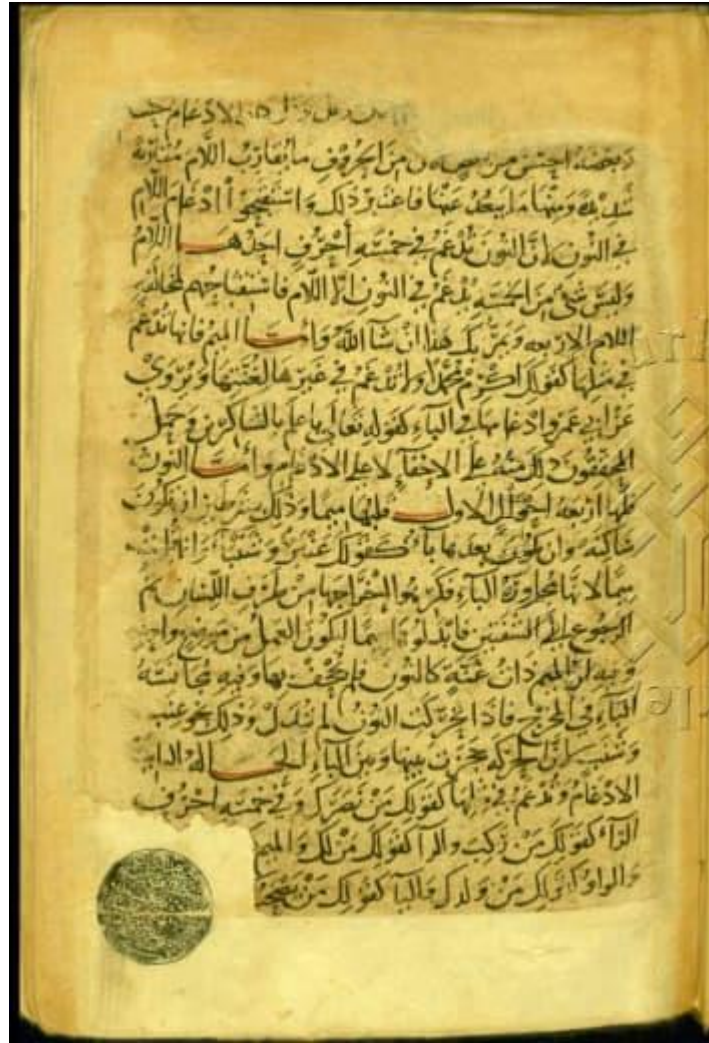 الادغام
بعضه احسن من بعض لان من الحروف ما يقارب اللام مقاربة
شديدة ومنها ما يبعد عنها فاعتبر ذلك واستقبحوا ادغام اللام
في النون لان النون تدغم في خمسة احرف احدها اللام
وليس شئ من الخمسة يدغم في النون الا اللام فاستقباحهم لمخالفة
اللام الاربعة ويمر بك هذا ان شآ الله واما الميم فانها تدغم
في مثلها كقولك اكرم محمدا ولا تدغم في غيرها لغنتها ويروى
عن ابي عمرو ادغامها في الباء كقوله تعالى باعلم بالشاكرين وحمل
المحققون ذلك منه على الاخفآ لا على الادغام واما النون
فلها اربعة احوال الاول قلبها ميما وذلك بشرطين ان تكون
ساكنة وان يكون بعدها بآء كقولك عنبر وشنبآء وانما قلبت
ميما لانها مجاورة البآء فكرهوا اخراجها من طرف اللسان ثم
الرجوع الى الشفتين فابدلوها ميما ليكون العمل من موضع واحد
وفيه ان الميم ذات غنة كالنون فلم يجحف بها وفيه مجانسة
البآء في المخرج فاذا تحركت النون لم تبدل وذلك نحو عنب
وشنب لان الحركة تحجز بينها وبين البآء الحالة الثانية
الادغام وتدغم في مثلها كقولك من نصرك وفي خمسة احرف
الرآء كقولك من ركبت واللام كقولك من لك والميم
والواو كقولك من ولدك واليآ كقولك من يصحبك